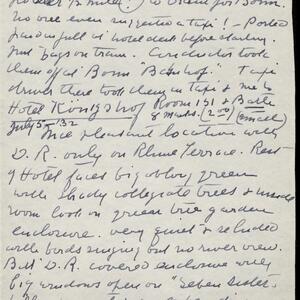 to train for Bonn.
No one even suggested a taxi! – Posted
at hotel desk before starting.
Put bags on tram. Conductor took
them off at Bonn "Bahnhof". Taxi
driver there took them in taxi & me to
Hotel Königshof Room 151 & Bath
July 5th '32 8 marks. (2.00) (small)
Nice pleasant location with
D.R. only on Rhine Terrace. Rest
of Hotel faces big oblong green
with shady collegiate trees &
room look on green tree garden
enclosure. Very quiet & secluded
with birds singing but no river view.
But D.R. covered enclosure with
big windows open on "Seven Sisters